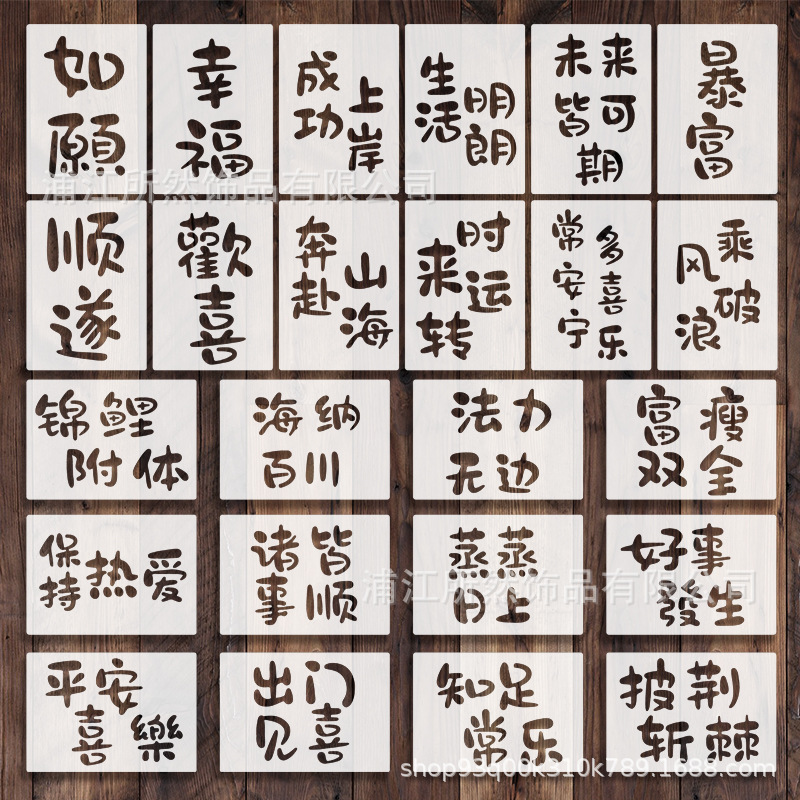 如願
幸福
成功
上岸
生活
明朗
未来
皆可
期
暴富
浦江所然饰品有限公司
顺遂
歡喜
奔赴
山海
时来
运转
常安宁
多喜乐
乘风
破浪
锦鲤
附体
海纳
百川
法力
无边
富瘦
双全
保持
热爱
诸事
皆顺
蒸蒸
日上
好事
發生
浦江所然饰品有限公司
平安
喜樂
出门
见喜
知足
常乐
披荆
斩棘
shop93q00k310k789.1688.com